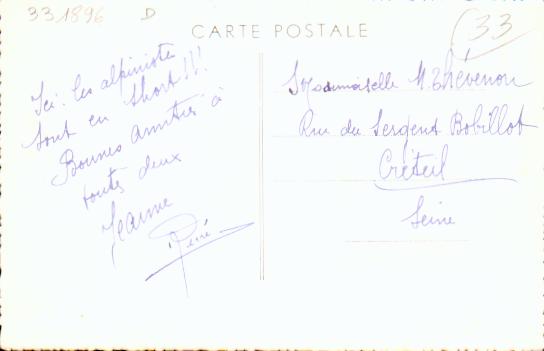 331896 D
33
CARTE POSTALE
Ici. les alpinistes
sont en short!!!
Bonnes amitiés à
toutes deux
Jeanne
René
Mademoiselle M. Thévenon
Rue du Sergent Bobillot
Créteil
Seine